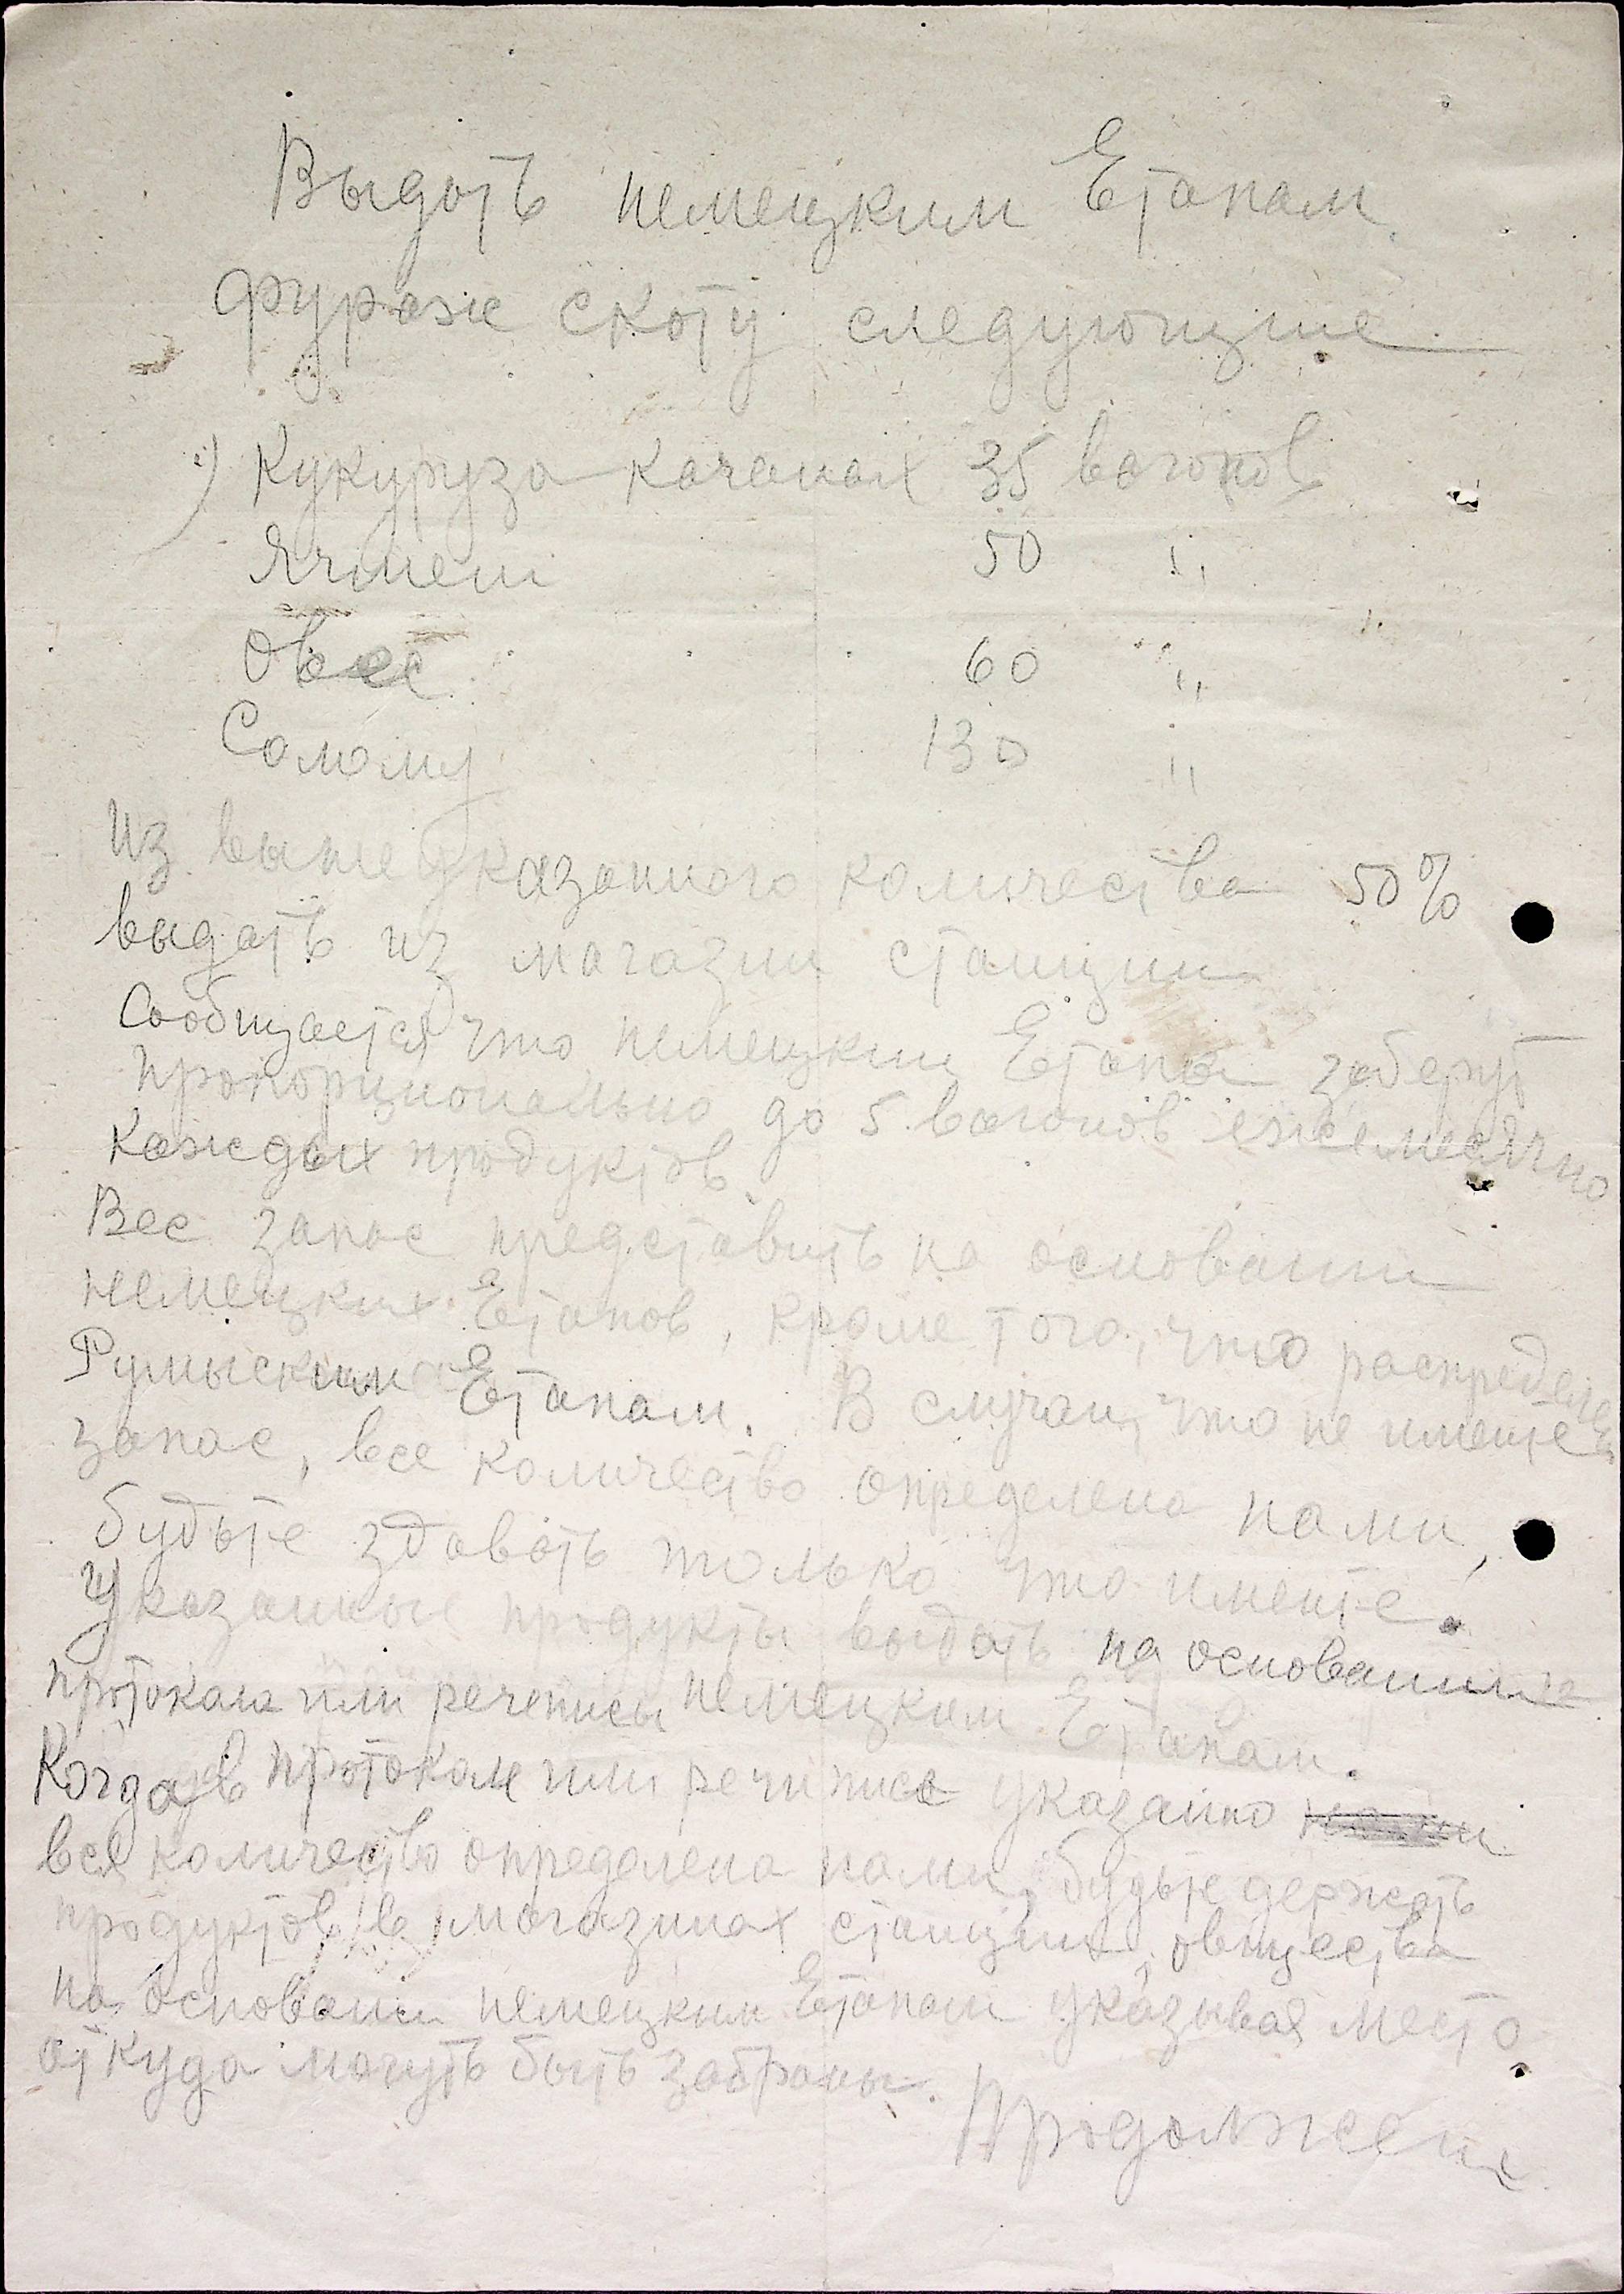 Выдать немецким Етапам
фураж скоту следующие
1) Кукуруза качанах 35 вагонов
Ячмени 50 "
Овес 60 "
Солому 130 "
Из вышеуказанного количества 50%
выдать из магазин станции
Сообщается что немецким Етапы заберут
пропорционально до 5 вагонов ежемесячно
каждых продуктов.
Вес запас представить на основании
немецких Етапов, кроме того, что распределен
Румыским Етапам. В случаи, что не имеете
запас, все количество определена нами,
будьте здавать только что имеете.
Указанные продукты выдать на основании
протокала или речеписы немецким Етапам.
Когда в протокале или речиписе указанно
все количество определена нами, будьте держать
продуктов в магазинах станции, овщества
на основании немецким Етапам указывая место
откуда могуть быть забраны.
Продолжение